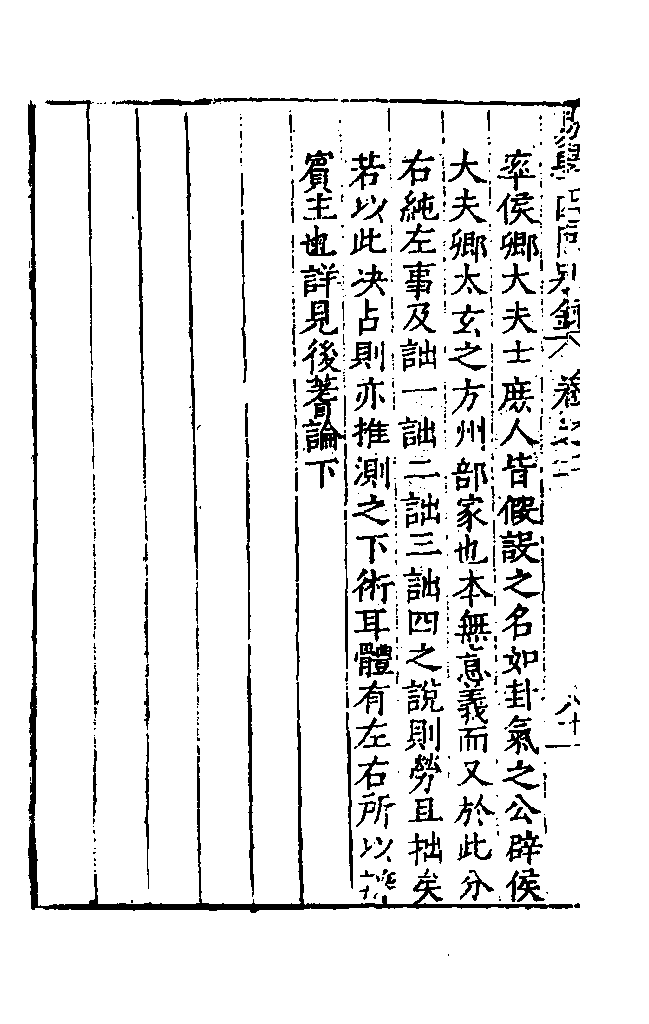 率侯卿大夫士庶人皆假設之名如卦氣之公辟侯
大夫卿太玄之方州部家也本無意義而又於此分
右純左事及詘一詘二詘三詘四之說則勞且拙矣
若以此决占則亦推測之下術耳體有左右所以
賓主也詳見後蓍論下
易學四同別錄 卷之二 八十一